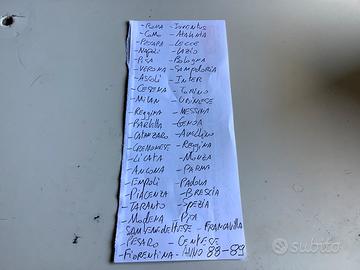 - ROMA - JUVENTUS
- COMO - ATALANTA
- PESCARA - LECCE
- NAPOLI - LAZIO
- PISA - BOLOGNA
- VERONA - SAMPDORIA
- ASCOLI - INTER
- CESENA - TORINO
- MILAN - UDINESE
- REGGINA - MESSINA
- BARLETTA - GENOA
- CATANZARO - AVELLINO
- CREMONESE - REGGINA
- LICATA - MONZA
- ANCONA - PARMA
- EMPOLI - PADOVA
- PIACENZA - BRESCIA
- TARANTO - SPEZIA
- MODENA PISA
SAMBENEDETTESE - FRANCAVILLA
- PESARO - CENTESE
- FIORENTINA - ANNO 88-89
subito